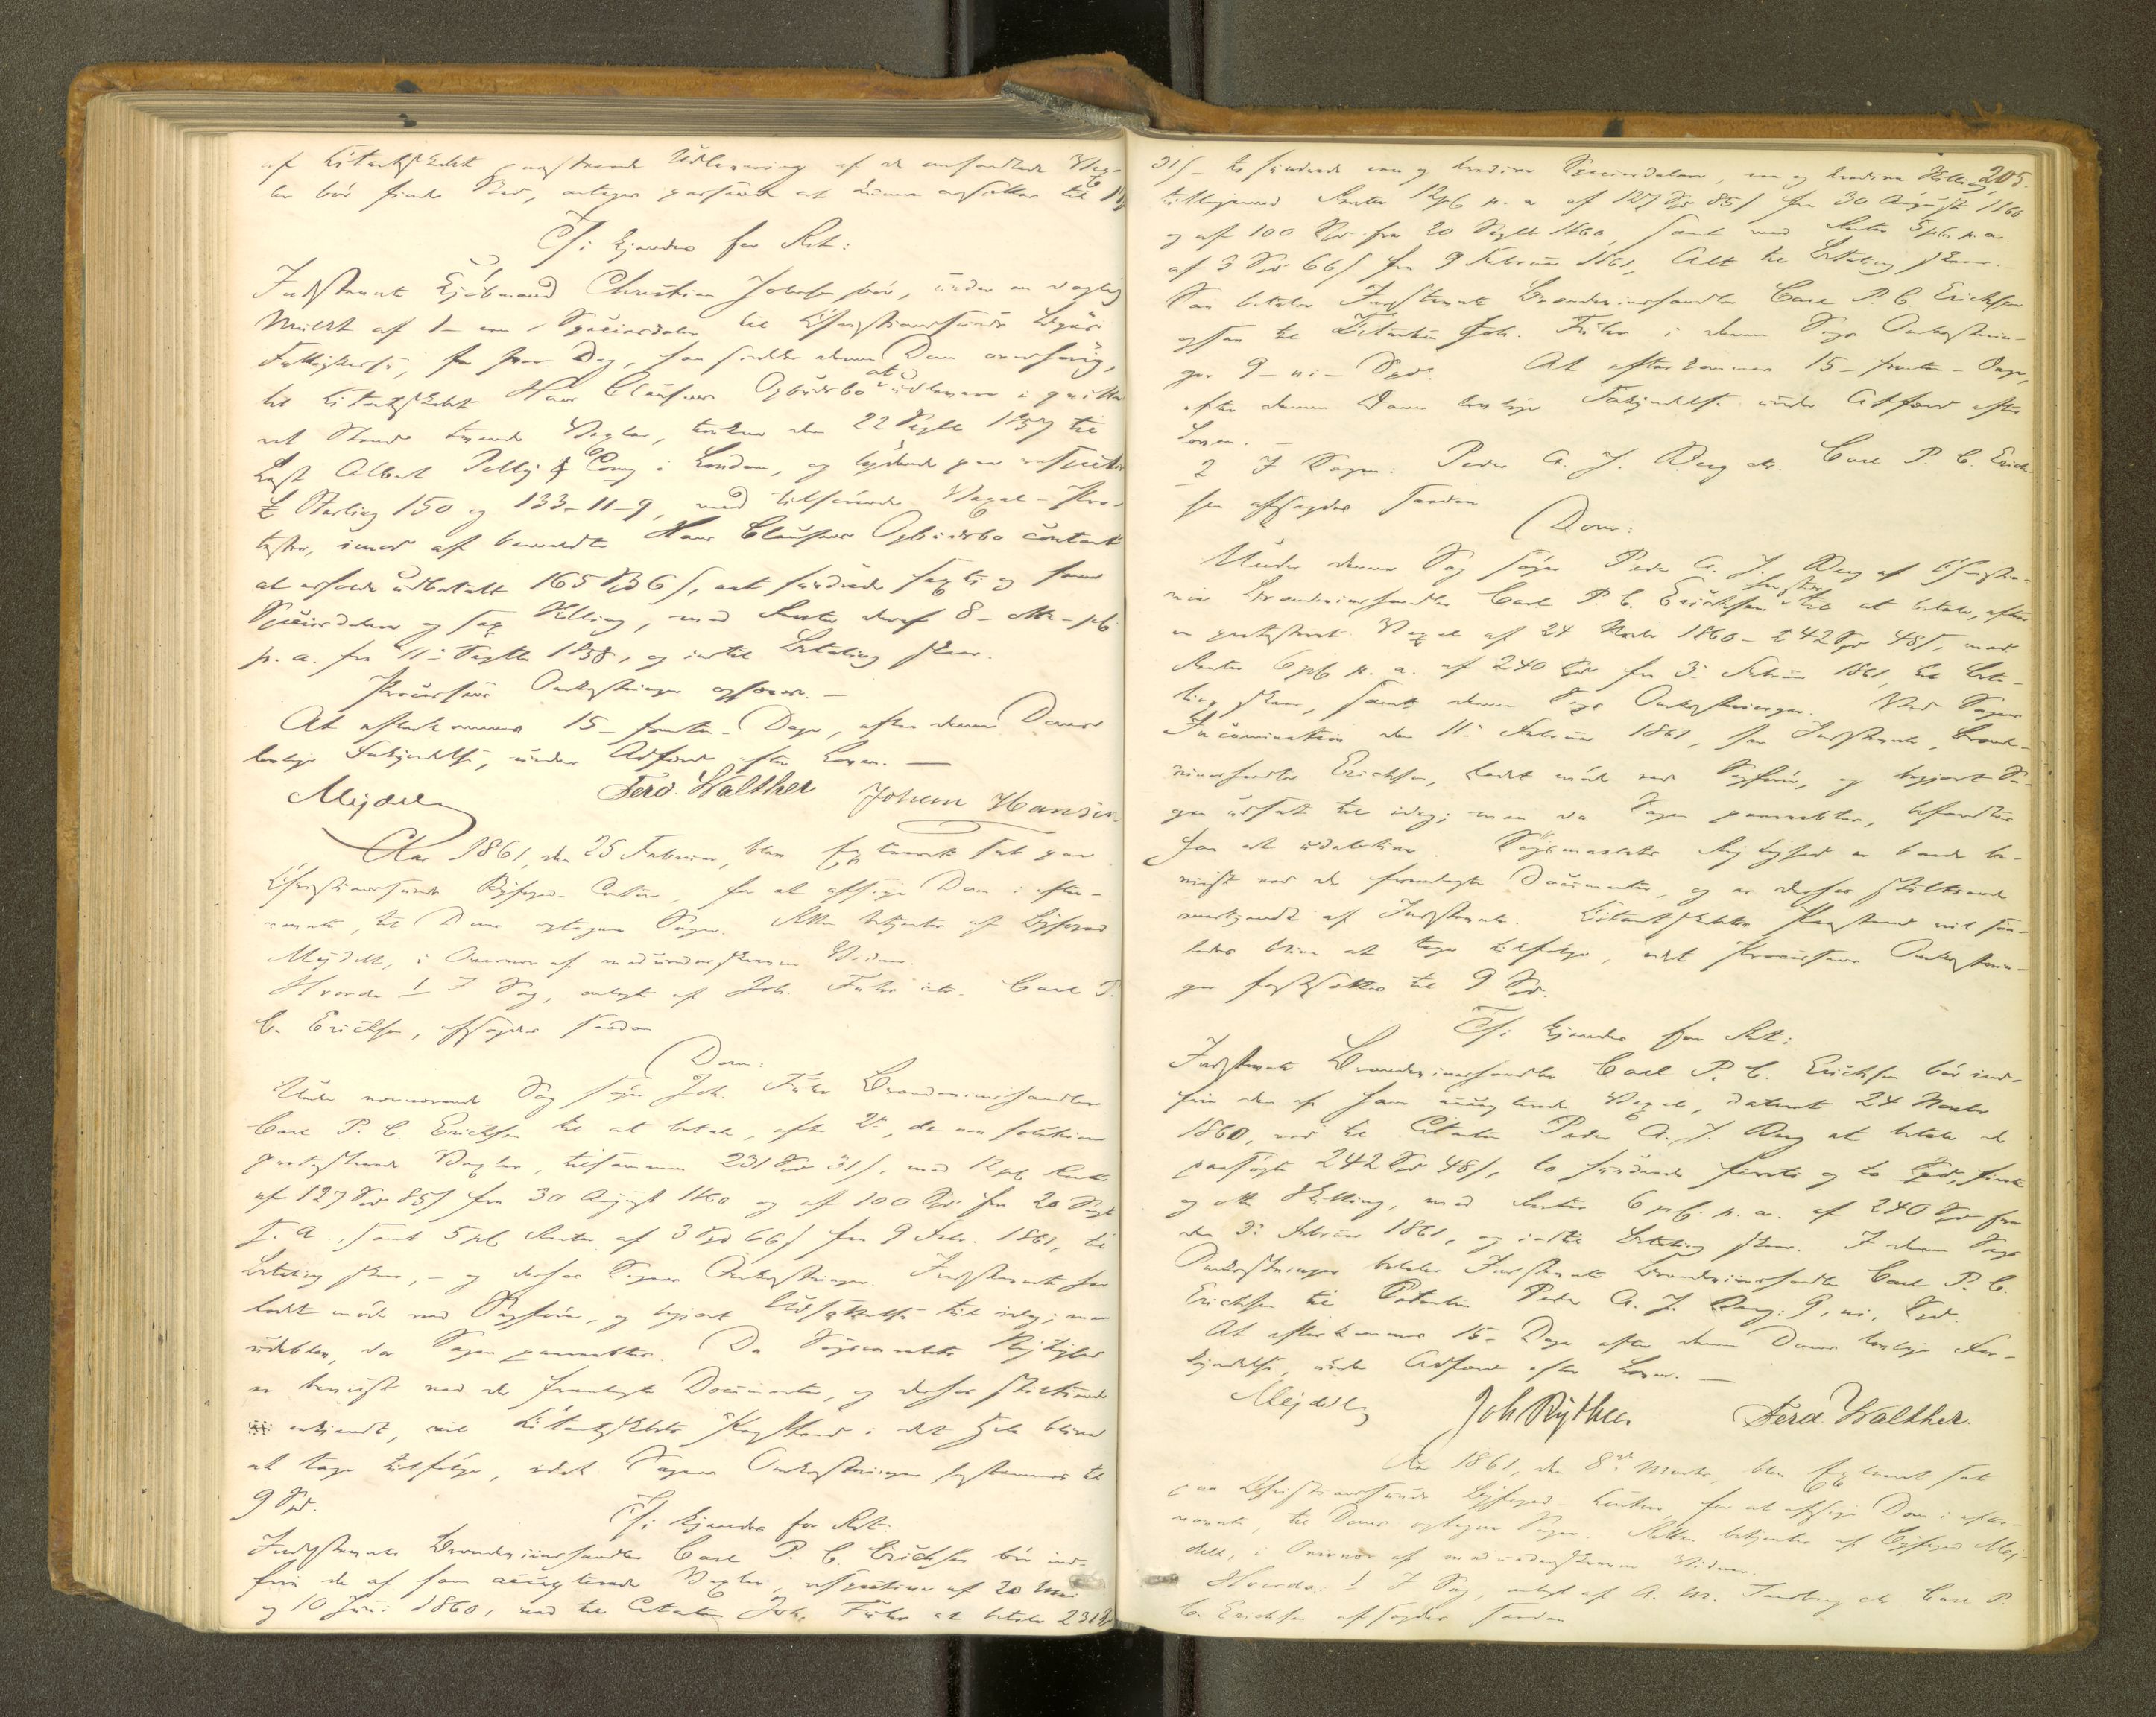 af Citantskabet paastaaede Udlevering af de omhandlede Vex-
ler bør finde Sted, antages passende at kunne ansættes til 1
Thi kjendes for Ret:
Indstævnte Kjøbmand Christian Johnsen bør, under en daglig
Mulkt af 1 – een – Speciedaler til Christianssunds Byes
Fattigkasse, for hver Dag, han sidder denne Dom overhørig,
til Citantskabet Hans Clausens Opbudsbo at udlevere i qvitte-
ret Stand tvende Vexler, trukne den 22 Septbr 1857 til
Last Albert Pelly & Comp i London, og lydende paa respective
£ Sterling 150 og 133-11-9, med tilhørende Vexel-Pro-
tester, imod af bemeldte Hans Clausens Opbudsbo contant
at erholde udbetalt 165 Spd 6 ß, eet hundrede sexti og fem
Speciedaler og sex Skilling, med Renter deraf 8 – otte – pCt
p. a. fra 11te Septbr 1858, og indtil Betaling skeer.
Processens Omkostninger ophæves. –
At efterkommes 15 – femten – Dage, efter denne Doms
lovlige Forkyndelse, under Adfærd efter Loven. –
Mejdell Ferd. Walther Johan Hansen
Aar 1861, den 25 Februar, blev Extraret sat paa
Christianssunds Byfoged-Contor, for at afsige Dom i efter-
nævnte, til Doms optagne Sager. Retten betjentes af Byfoged
Mejdell, i Overvær af medunderskrevne Vidner.
Hvorda: 1 I Sag, anlagt af Joh. Führ ctr. Carl P.
C. Erichsen, afsagdes saadan
Dom:
Under nærværende Sag søger Joh. Führ Brændeviinshandler
Carl P. C. Erichsen til at betale, efter 2de, de non solutione
protesterede Vexler, tilsammen 231 Spd 31 ß, med 12 pCt Rente
af 127 Spd 85 ß fra 30 August 1860 og af 100 Spd fra 20 Septbr
s. A., samt 5 pCt Renter af 3 Spd 66 ß fra 9 Febr. 1861, til
Betaling skeer, – og derhos Sagens Omkostninger. Indstævnte har
ladet møde ved Sagfører, og begjert Udsættelse til idag; men
udeblev, da Sagen paaraabtes. Da Søgsmaalets Rigtighed
er beviist ved de fremlagte Documenter, og derhos stiltiende
erkjendt, vil Citantskabets Paastand i det Hele blive
at tage tilfølge, idet Sagens Omkostninger bestemmes til
9 Spd.
Thi kjendes for Ret:
Indstævnte Brændeviinshandler Carl P. C. Erichsen bør ind-
frie de af ham accepterede Vexler, respective af 20 Mai
og 10 Juni 1860, ved til Citanten Joh. Führ at betale 231 Spd
205.
31 ß – to hundrede een og tredive Speciedaler, een og tredive Skilling,
tilligemed Renter 12 pCt p. a. af 127 Spd 85 ß fra 30 August 1860
og af 100 Spd fra 20 Septbr 1860, samt med Renter 5 pCt p. a.
af 3 Spd 66 ß fra 9 Februar 1861, Alt til Betaling skeer.
Saa betaler Indstævnte Brændeviinshandler Carl P. C. Erichsen
ogsaa til Citanten Joh. Führ i denne Sags Omkostnin-
ger 9 – ni – Spd. At efterkommes 15 – femten – Dage,
efter denne Doms lovlige Forkyndelse under Adfærd efter
Loven. –
2 I Sagen: Peder A. J. Berg ctr. Carl P. C. Erich-
sen afsagdes saadan
Dom:
Under denne Sag søger Peder A. J. Berg af Christia-
nia Brændeviinshandler Carl P. C. Erichsen til at betale, efter
en protesteret Vexel af 24 Novbr 1860 – 242 Spd 48 ß, med
Renter 6 pCt p. a. af 240 Spd fra 3die Februar 1861, til Beta-
ling skeer, samt denne Sags Omkostninger. Ved Sagens
Incamination den 11te Februar 1861, har Indstævnte, Brænde-
viinshandler Erichsen, ladet møde ved Sagfører, og begjert Sa-
gen udsat til idag; men da Sagen paaraabtes, befandtes
han at udeblive. Søgsmaalets Rigtighed er baade be-
viist ved de fremlagte Documenter, og er derhos stiltiende
vedkjendt af Indstævnte. Citantskabets Paastand vil saa-
ledes blive at tage tilfølge, idet Processens Omkostnin-
ger fastsættes til 9 Spd.
Thi kjendes for Ret:
Indstævnte Brændeviinshandler Carl P. C. Erichsen bør ind-
frie den af ham accepterede Vexel, dateret 24 Novbr
1860, ved til Citanten Peder A. J. Berg at betale de
paasøgte 242 Spd 48 ß, to hundrede fireti og to Spd, fireti
og otte Skilling, med Renter 6 pCt. p. a. af 240 Spd fra
den 3die Februar 1861, og indtil Betaling skeer. I denne Sags
Omkostninger betaler Indstævnte Brændeviinshandler Carl P. C.
Erichsen til Citanten Peder A. J. Berg: 9, ni, Spd.
At efterkommes 15 – Dage efter denne Doms lovlige For-
kyndelse, under Adfærd efter Loven. –
Mejdell Joh Rÿther Ferd. Walther.
Aar 1861, den 8de Marts, blev Extraret sat
paa Christianssunds Byfoged-Contor, for at afsige Dom i efter-
nævnte, til Doms optagne Sager. Retten betjentes af Byfoged Mej-
dell, i Overvær af medunderskrevne Vidner.
Hvorda: 1 I Sag, anlagt af A. M. ctr Carl P.
C. Erichsen afsagdes saadan